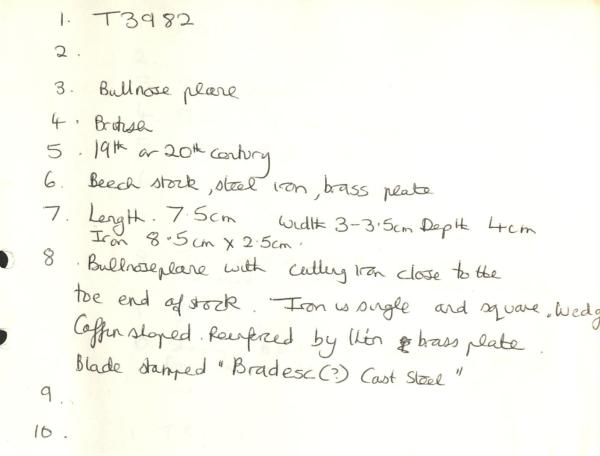 1. T3982
2.
3. Bullnose plane
4. British
5. 19th or 20th century
6. Beech stock, steel iron, brass plate
7. Length. 7.5cm Width 3-3.5cm Depth 4cm
Iron 8.5cm x 2.5cm.
8. Bullnose plane with cutting iron close to the
toe end of stock. Iron is single and square. Wedg
Coffin shaped. Reinforced by thin brass plate.
Blade stamped "Bradesc(?) Cast Steel"
9.
10.